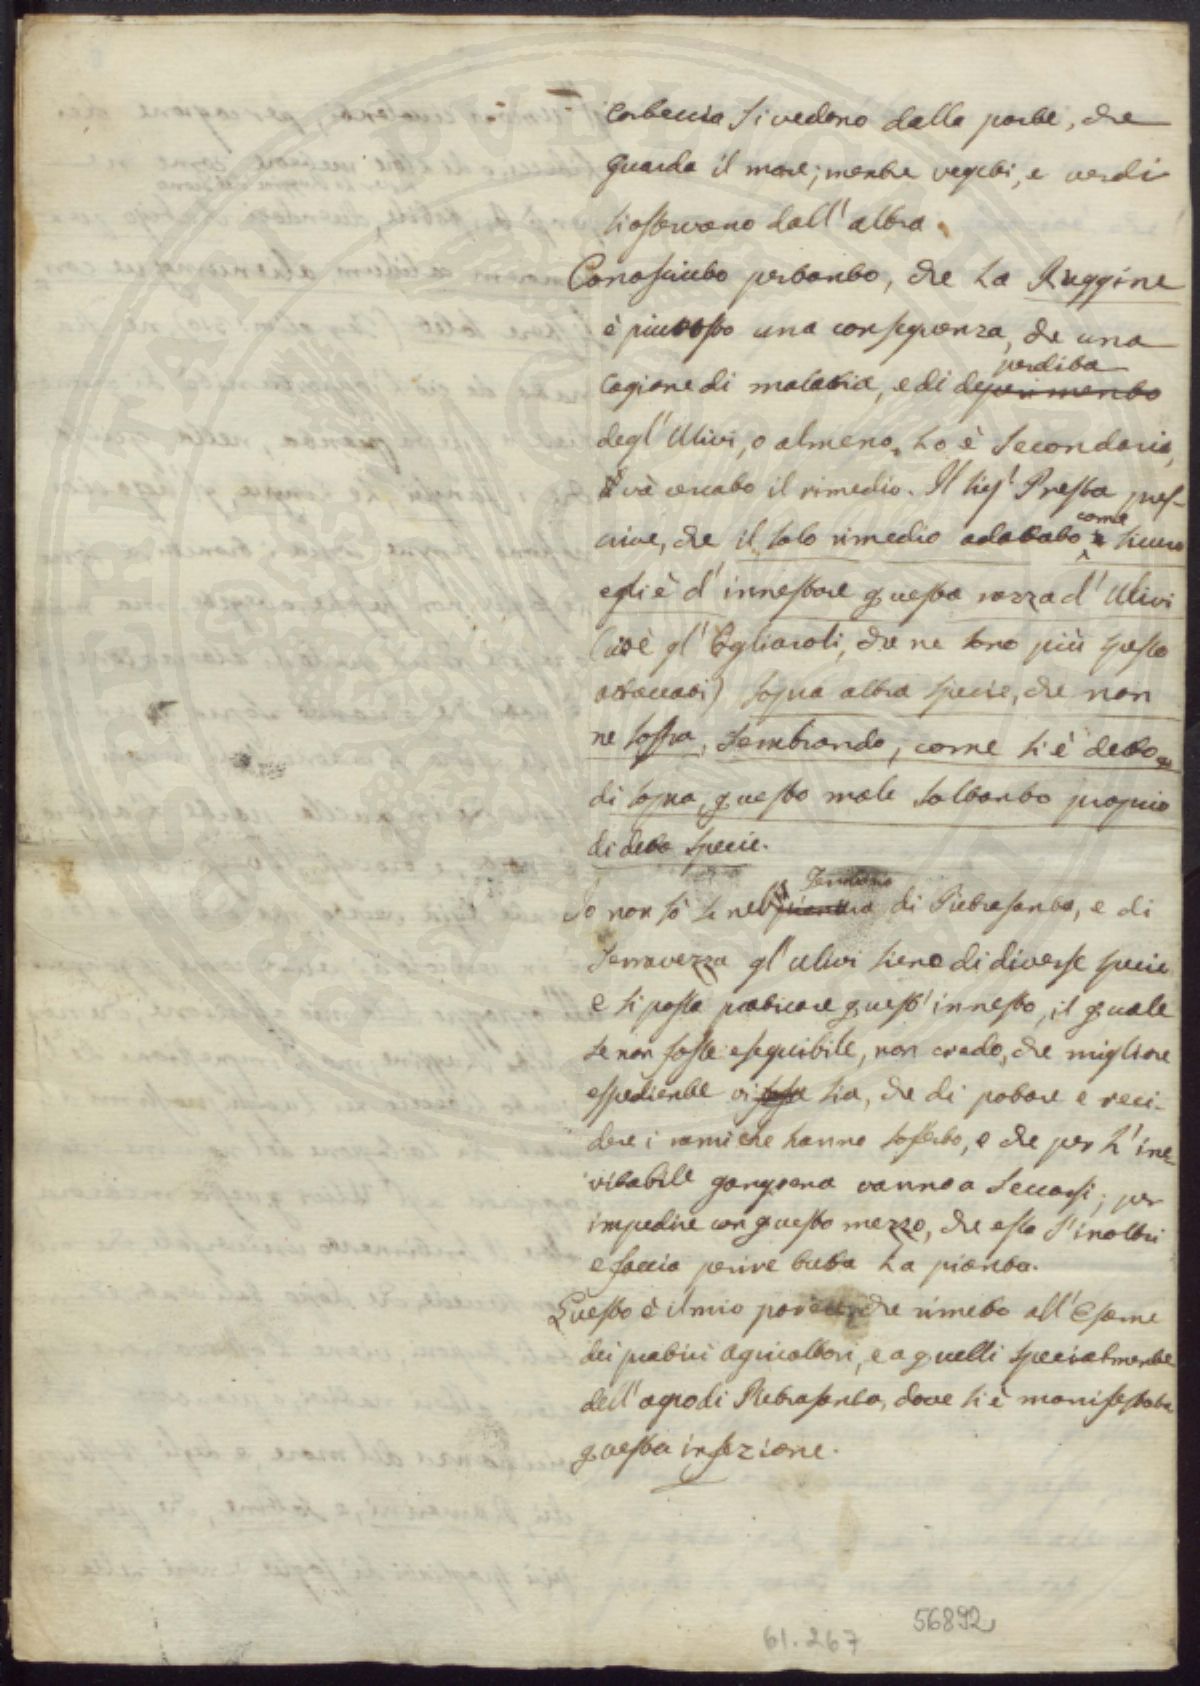 corteccia si vedono dalla parte, che
guarda il mare; mentre vegeti, e verdi
si osservano dall' altra.
Conosciuto pertanto, che la Ruggine
è piuttosto una conseguenza, che una
perdita
cagione di malattia, e di deperimento
degl' Ulivi, o almeno, lo è secondaria,
và cercato il rimedio. Il Sig.r Presta pres-
come
crive, che il solo rimedio adattato sicuro
egli è d' innestare questa razza d' Ulivi
(cioè gl' Ogliaroli, che ne sono più spesso
attaccati) sopra altra specie, che non
ne soffra, sembrando, come si è detto
di sopra, questo male soltanto proprio
di detta specie.
Territorio
Io non sò se nel di Pietrasanta, e di
Serravezza gl' ulivi sieno di diverse specie
e si possa praticare quest' innesto, il quale
se non fosse eseguibile, non credo, che migliore
espediente vi sia, che di potare e reci-
dere i rami che hanno sofferto, e che per l' ine-
vitabile gangrena vanno a seccarsi; per
impedire con questo mezzo, che essa s' inoltri
e faccia perire tutta la pianta.
Questo è il mio parere, che rimetto all' Esame
dei pratici agricoltori, e a quelli specialmente
dell' agro di Pietrasanta, dove si è manifestata
questa infezione.
56892
61.267